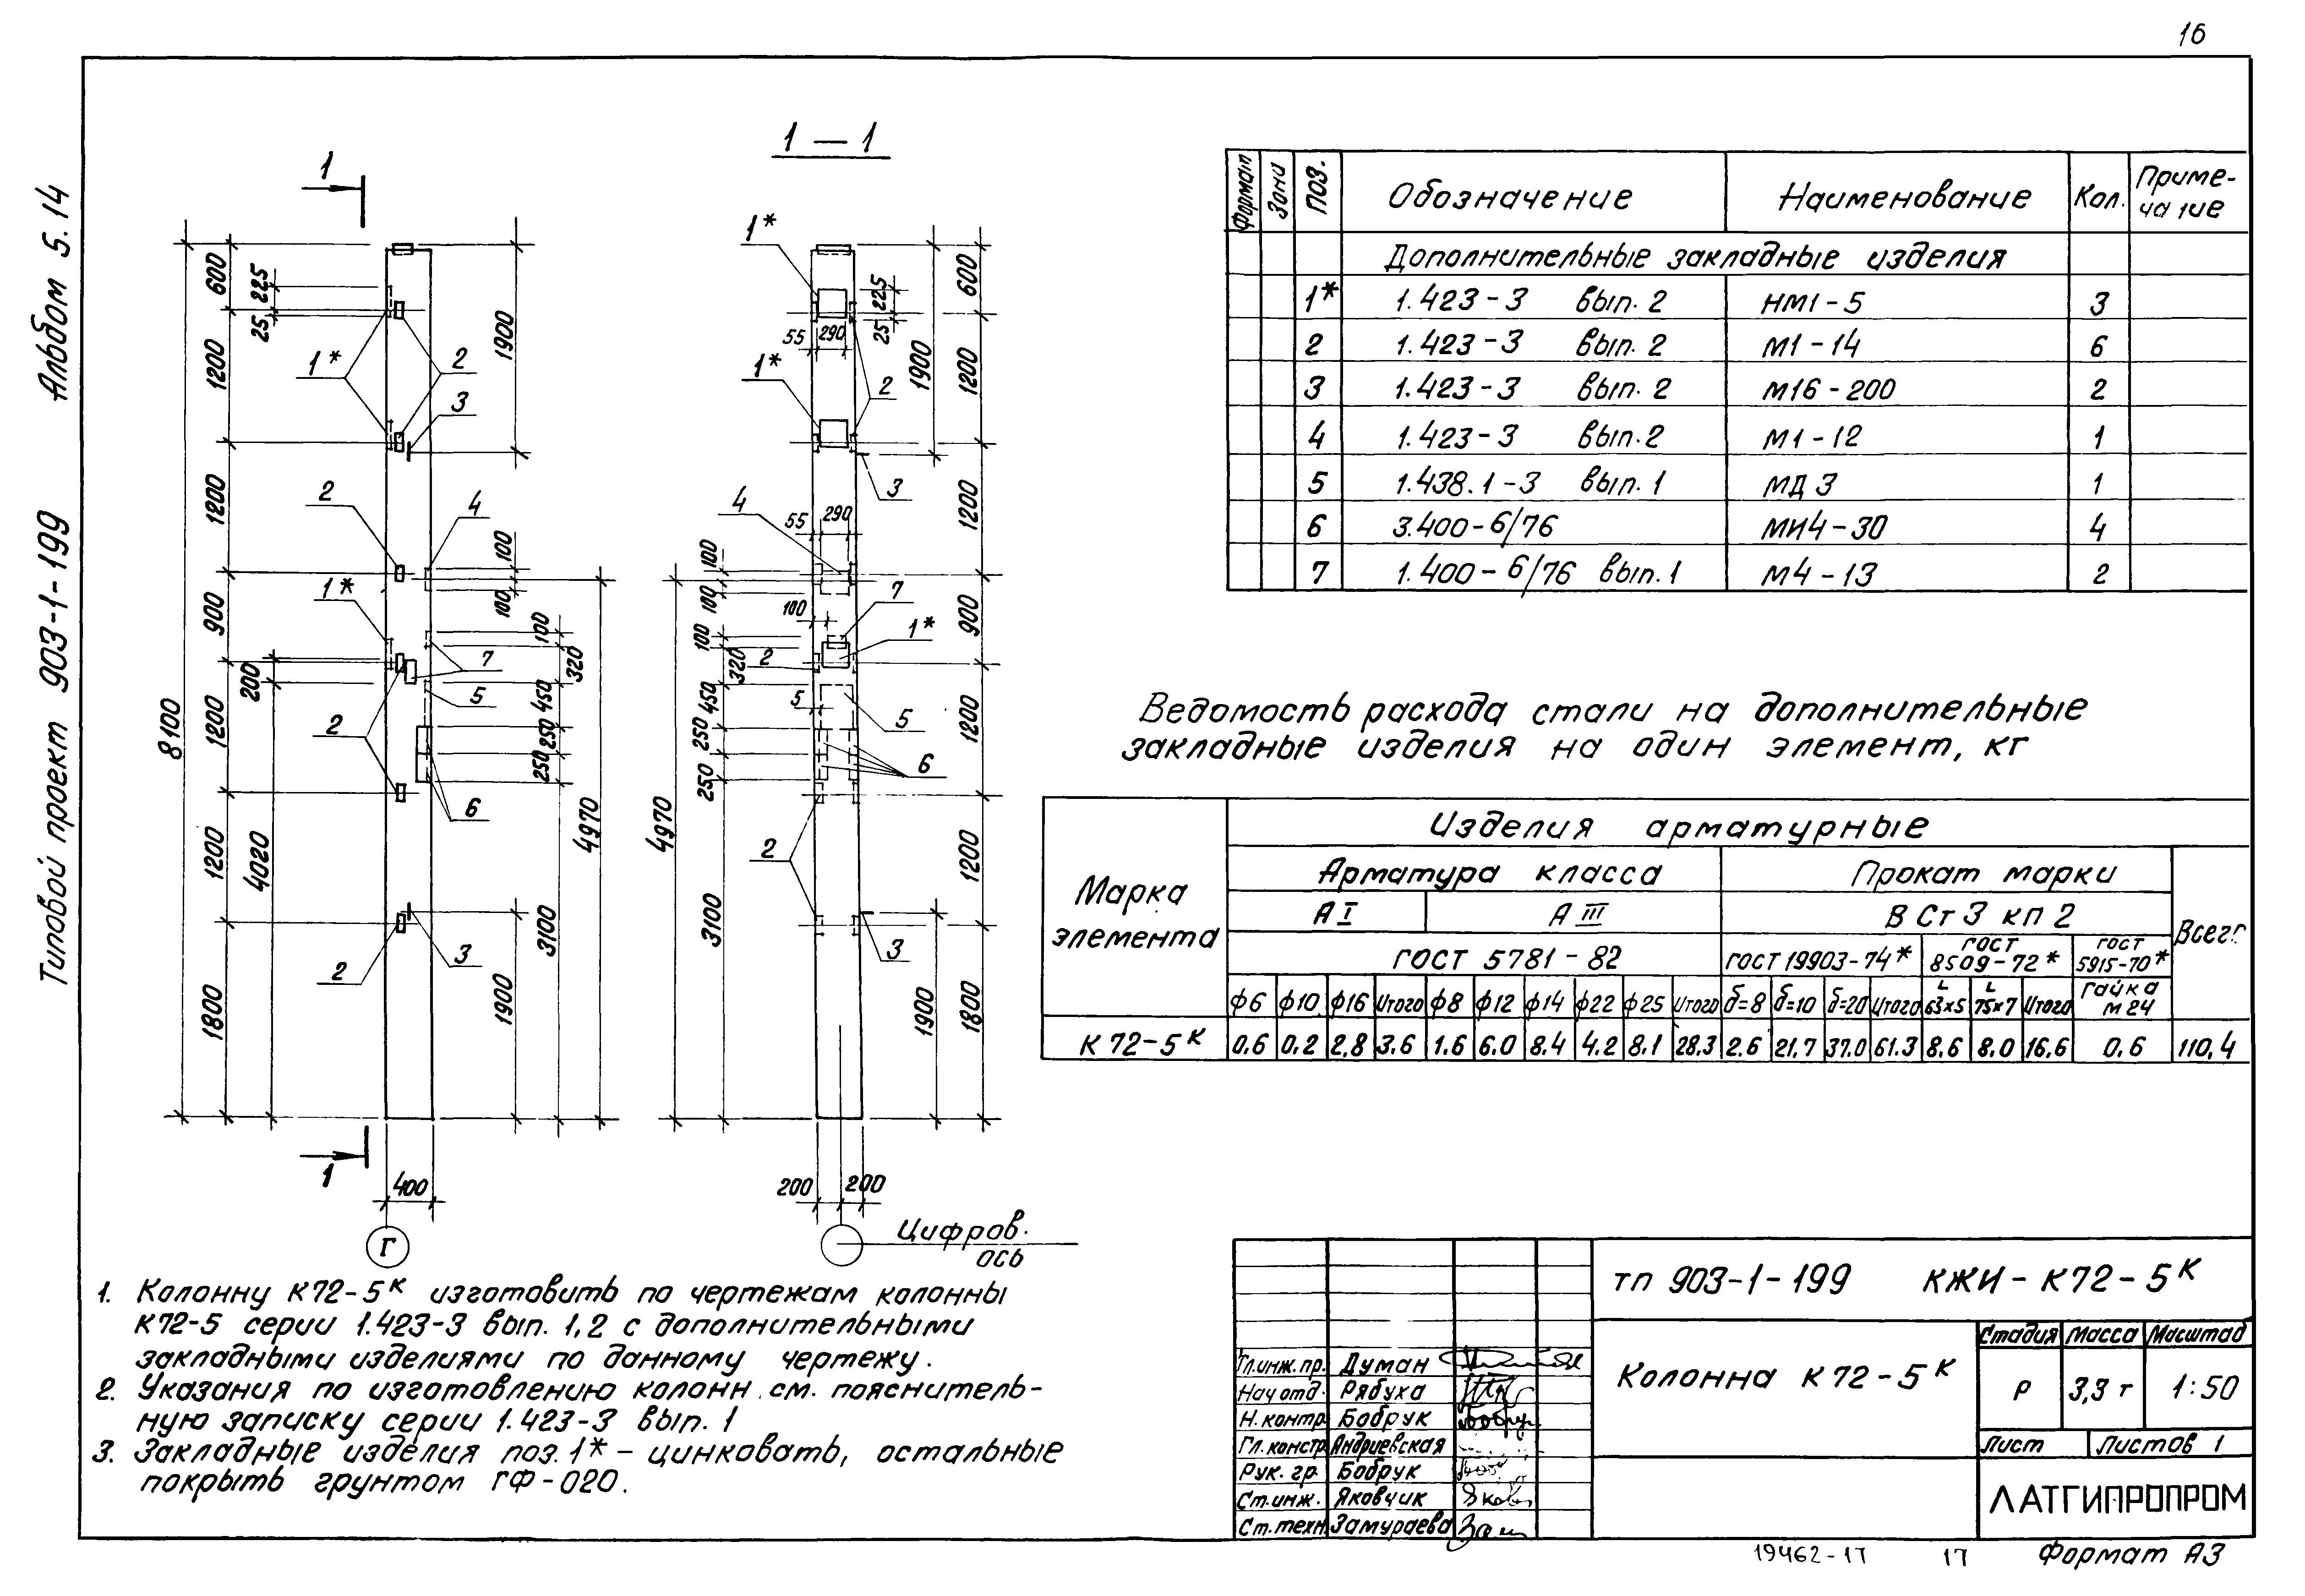 16
Типовой проект 903-1-199 Альбом 5.14
1
1
1 — 1
8100
600
225
25
1200
1200
900
200
1200
4020
1200
1800
1900
1*
2
3
2
4
100
100
1*
7
100
320
5
450
2
250
250
6
4970
3100
2
3
1900
400
Г
1*
225
25
600
55
290
1*
2
1900
1200
3
4
55
290
1200
100
100
100
7
1*
900
100
320
2
450
5
5
250
6
250
1200
4970
2
1200
3100
3
1900
1800
200
200
Цифров.
ось
Формат
Зона
Поз.
Обозначение
Наименование
Кол.
Приме-
чание
Дополнительные закладные изделия
1* 1.423-3 вып. 2 НМ1-5 3
2 1.423-3 вып. 2 М1-14 6
3 1.423-3 вып. 2 М16-200 2
4 1.423-3 вып. 2 М1-12 1
5 1.438.1-3 вып. 1 МД 3 1
6 3.400-6/76 МИ4-30 4
7 1.400-6/76 вып. 1 М4-13 2
Ведомость расхода стали на дополнительные
закладные изделия на один элемент, кг
Марка
элемента
Изделия арматурные
Арматура класса
Прокат марки
А I
А III
В Ст 3 кп 2
ГОСТ 5781-82
ГОСТ 19903-74*
ГОСТ
8509-72*
ГОСТ
5915-70*
Всего
ф6 ф10 ф16 Итого ф8 ф12 ф14 ф22 ф25 Итого δ=8 δ=10 δ=20 Итого L 63х5 L 75х7 Итого Гайка М24
К 72-5К 0.6 0.2 2.8 3.6 1.6 6.0 8.4 4.2 8.1 28.3 2.6 21.7 37.0 61.3 8.6 8.0 16.6 0.6 110,4
1. Колонну К72-5К изготовить по чертежам колонны
К72-5 серии 1.423-3 вып. 1,2 с дополнительными
закладными изделиями по данному чертежу.
2. Указания по изготовлению колонн см. пояснитель-
ную записку серии 1.423-3 вып. 1
3. Закладные изделия поз. 1* - цинковать, остальные
покрыть грунтом ГФ-020.
тп 903-1-199 КЖИ-К72-5К
Колонна К 72-5К
Стадия Масса Масштаб
Р 3,3 т 1:50
Лист Листов 1
ЛАТГИПРОПРОМ
Гл.инж.пр. Думан
Нач отд. Рябуха
Н. контр. Бобрук
Гл. констр. Андриевская
Рук. гр. Бобрук
Ст.инж. Яковчик
Ст.техн. Замураева
19462-17 17 Формат А3